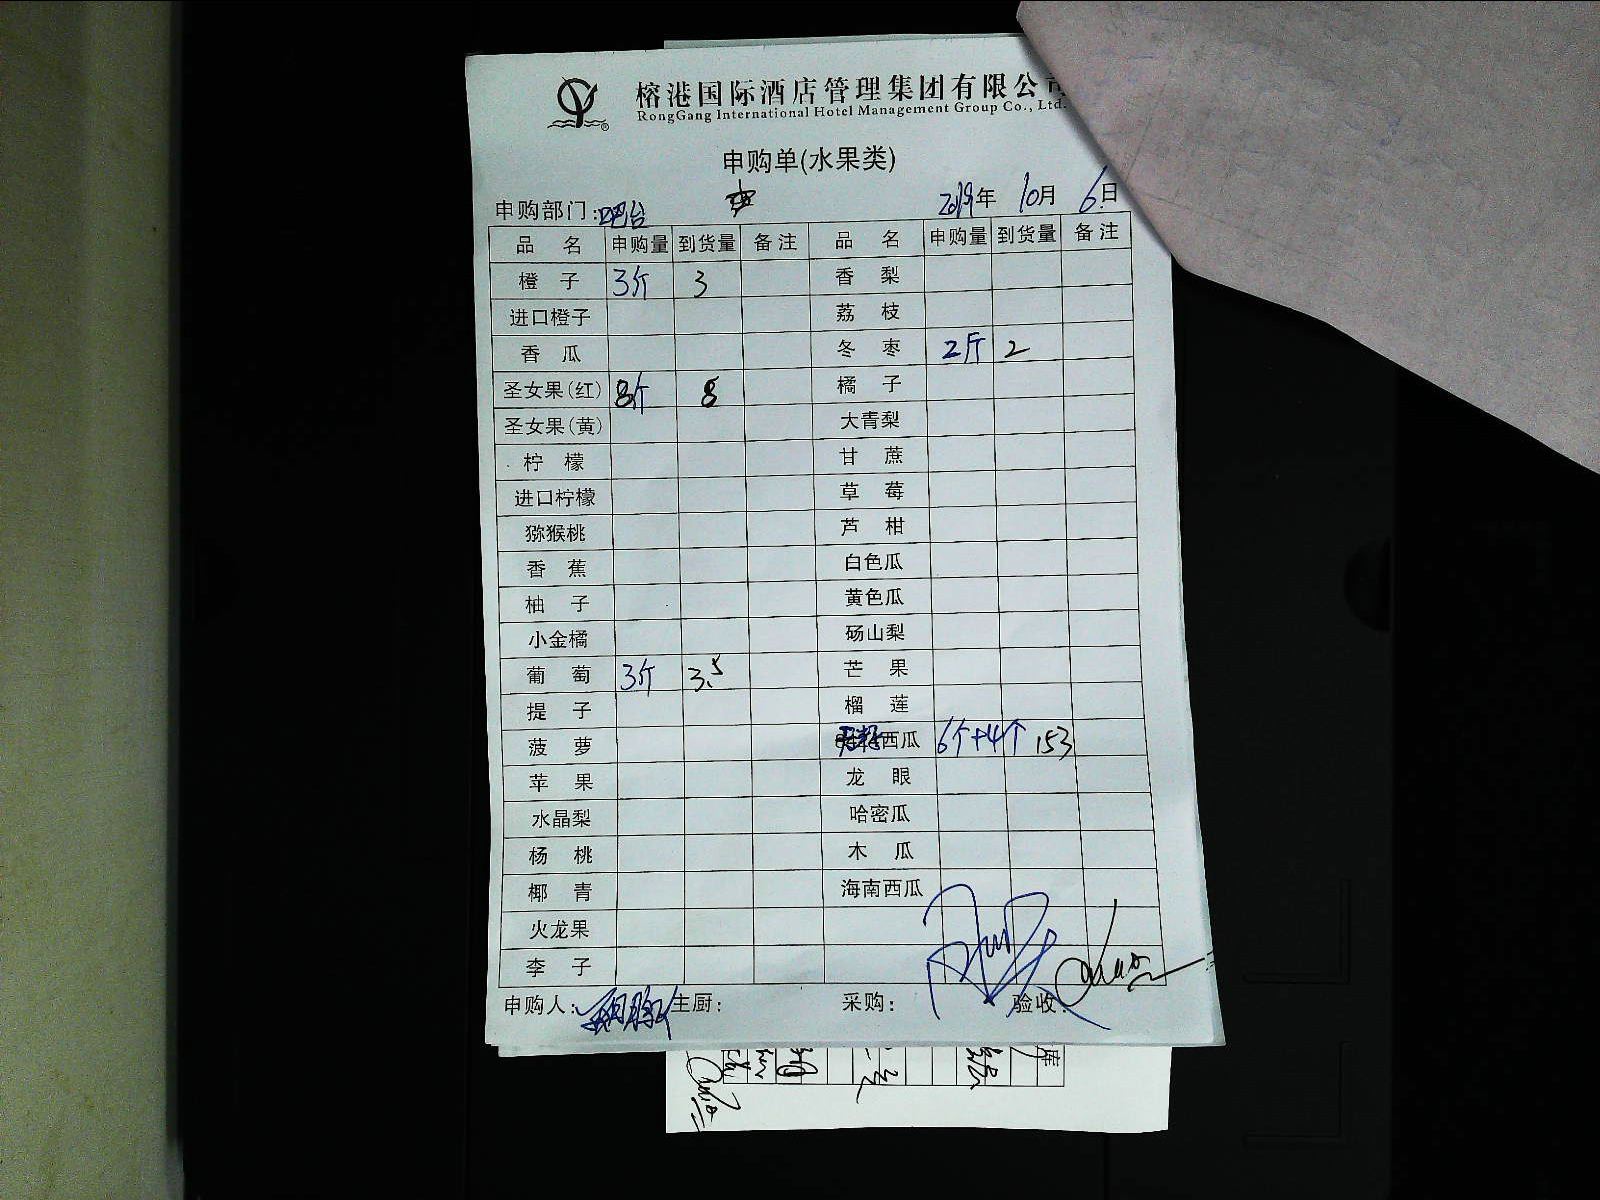 榕港国际酒店管理集团有限公司
RongGang International Hotel Management Group Co., Ltd.
申购单(水果类)
申购部门:吧台 2019年 10月 6日
品 名 申购量 到货量 备注 品 名 申购量 到货量 备注
橙 子 3斤 3 香 梨
进口橙子 荔 枝
香 瓜 冬 枣 2斤 2
圣女果(红) 8斤 8 橘 子
圣女果(黄) 大青梨
柠 檬 甘 蔗
进口柠檬 草 莓
猕猴桃 芦 柑
香 蕉 白色瓜
柚 子 黄色瓜
小金橘 砀山梨
葡 萄 3斤 3.5 芒 果
提 子 榴 莲
菠 萝 西瓜 6个+4个 153
苹 果 龙 眼
水晶梨 哈密瓜
杨 桃 木 瓜
椰 青 海南西瓜
火龙果
李 子
申购人: 主厨: 采购: 验收: